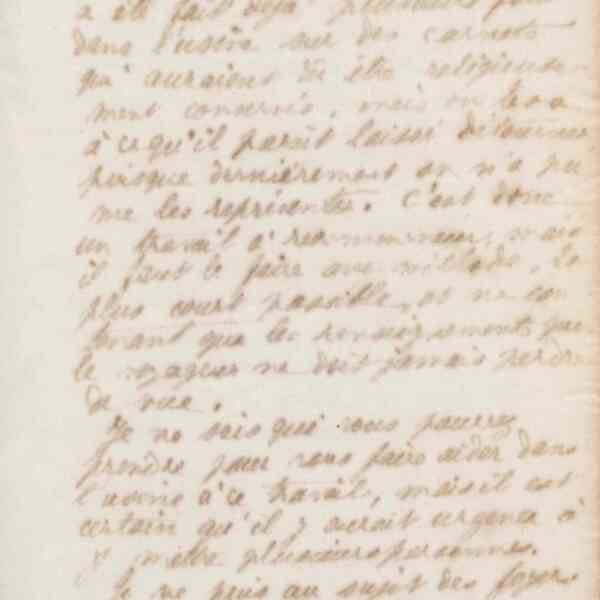 a été fait déjà plusieurs fois
dans l'usine sur des carnets
qui auraient dû être religieuse-
ment conservés, mais on les a
à ce qu'il paraît laissé détourner
puisque dernièrement on n'a pu
me les représenter. C'est donc
un travail à recommencer, mais
il faut le faire avec méthode, le
plus court possible, et ne con
tenant que les renseignements que
le voyageur ne doit jamais perdre
de vue.
Je ne sais qui vous pourrez
prendre pour vous faire aider dans
l'usine à ce travail, mais il est
certain qu'il y aurait urgence à
y mettre plusieurs personnes.
Je ne puis au sujet des foyers